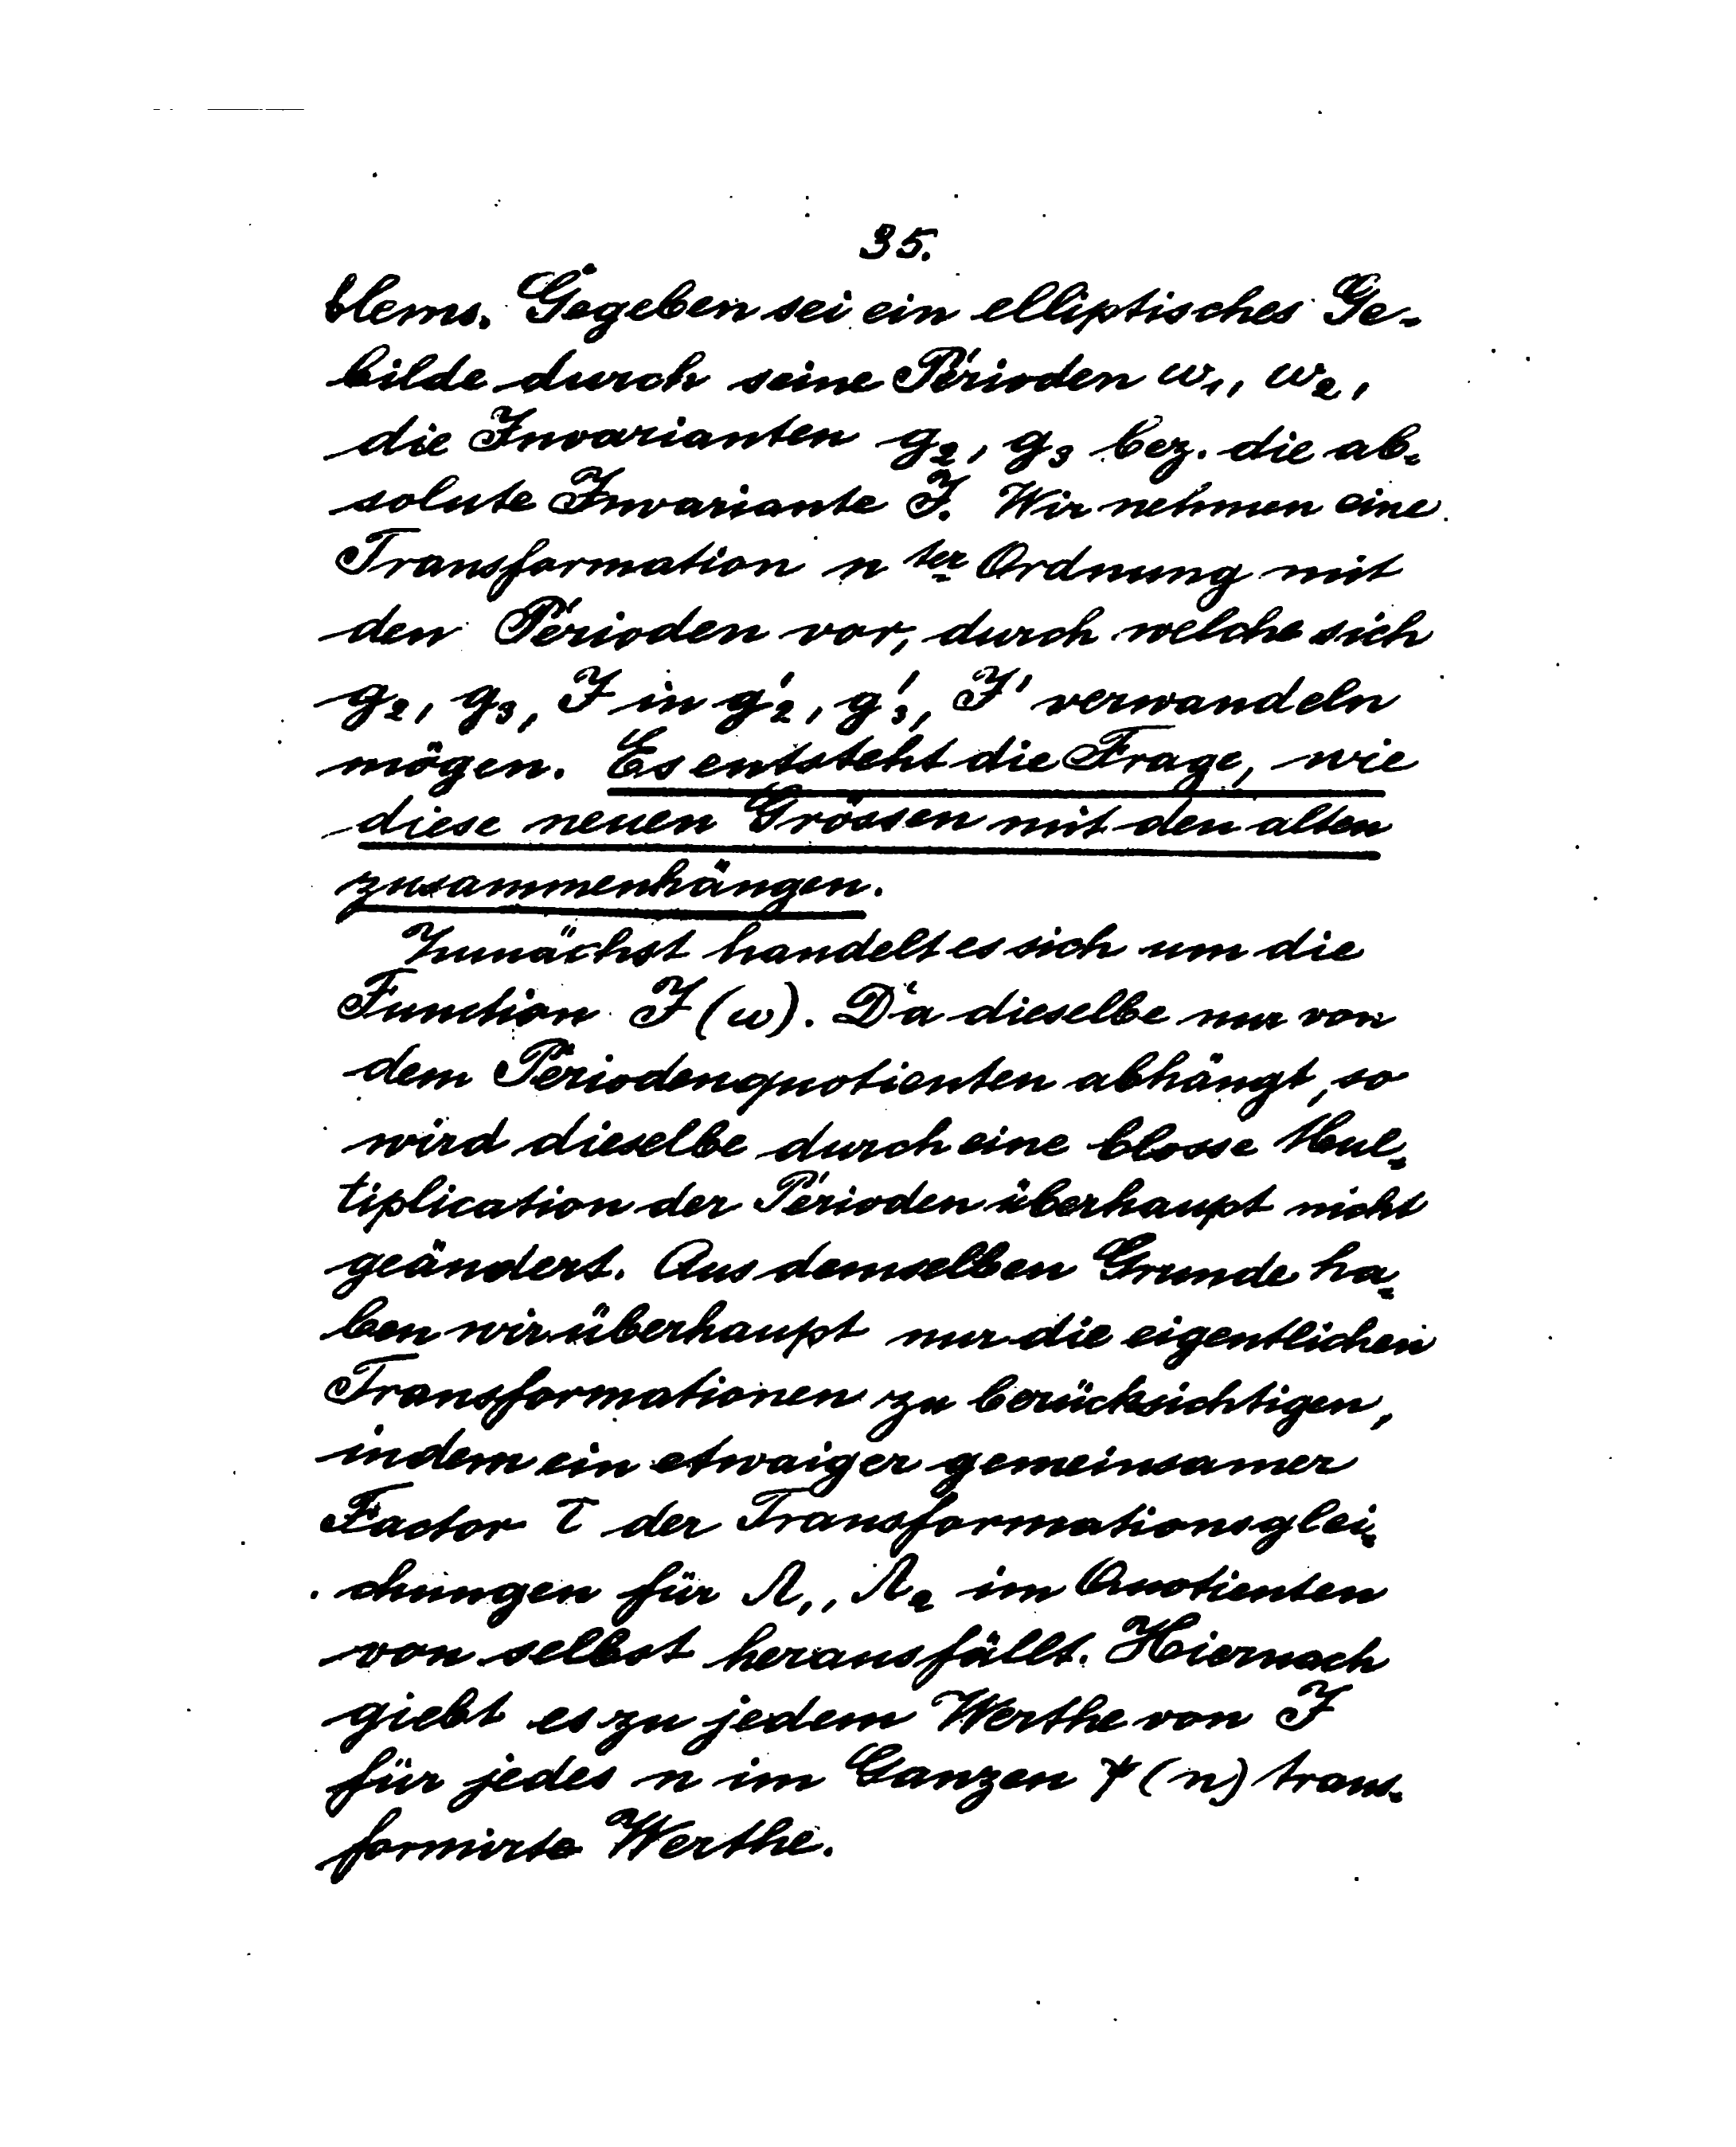 35.
blems. Gegeben sei ein elliptisches Ge-
bilde durch seine Perioden ω₁, ω₂,
die Invarianten g₂, g₃ bez. die ab-
solute Invariante J. Wir nehmen eine
Transformation n ter Ordnung mit
den Perioden vor, durch welche sich
g₂, g₃, J in g'₂, g'₃, J' verwandeln
mögen. Es entsteht die Frage, wie
diese neuen Grössen mit den alten
zusammenhängen.
Zunächst handelt es sich um die
Function J (ω). Da dieselbe nur von
dem Periodenquotienten abhängt, so
wird dieselbe durch eine blosse Mul-
tiplication der Perioden überhaupt nicht
geändert. Aus demselben Grunde ha-
ben wir überhaupt nur die eigentlichen
Transformationen zu berücksichtigen,
indem ein etwaiger gemeinsamer
Factor τ der Transformationsglei-
chungen für Λ₁, Λ₂ im Quotienten
von selbst herausfällt. Hiernach
giebt es zu jedem Werthe von J
für jedes n im Ganzen ψ (n) trans-
formirte Werthe.